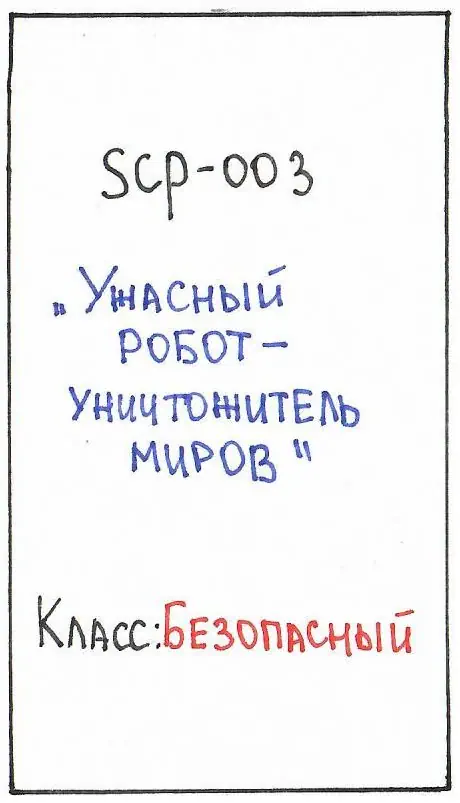 SCP-003
„Ужасный
робот-
уничтожитель
миров"
Класс:Безопасный